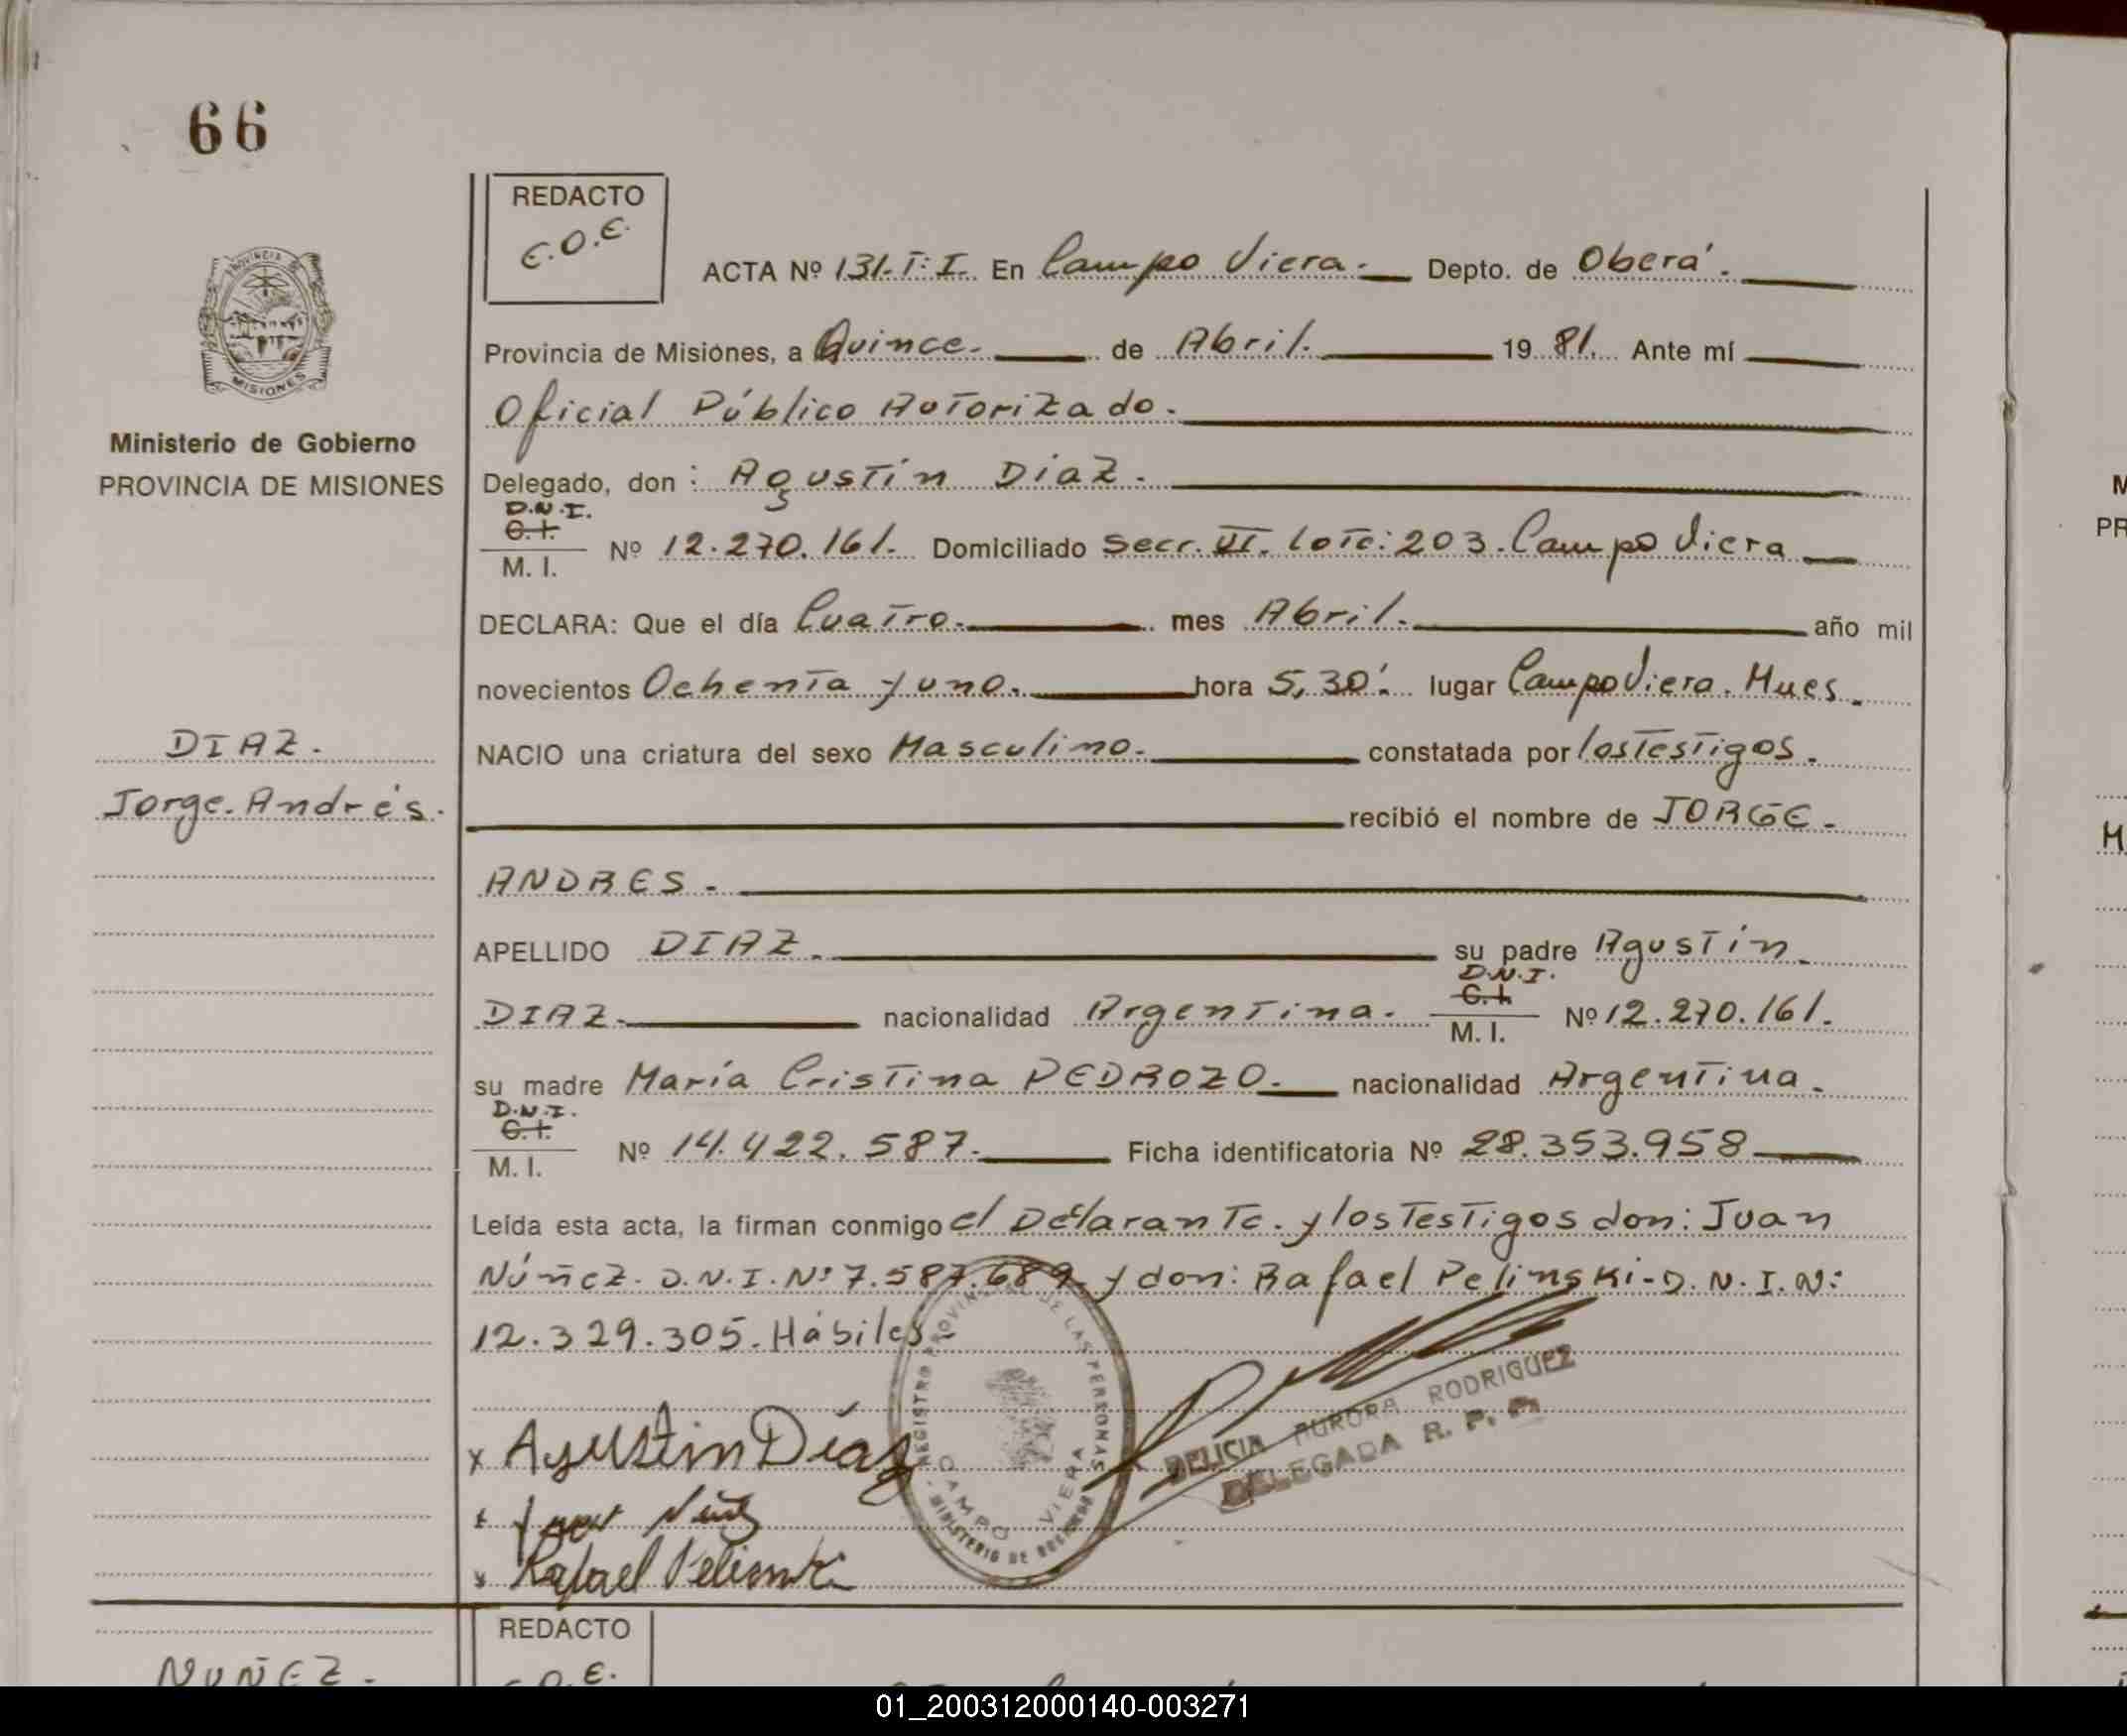 66
REDACTO
E.O.E.
ACTA Nº 131. T: I. En Campo Viera. Depto. de Oberá.
Provincia de Misiónes, a Quince. de Abril. 19 81. Ante mí
Oficial Público Autorizado.
Ministerio de Gobierno
PROVINCIA DE MISIONES
Delegado, don: Agustín Diaz.
D.N.I.
C.I.
M. I. Nº 12.270.161. Domiciliado Secc. VI. lote: 203. Campo Viera
DECLARA: Que el día Cuatro. mes Abril. año mil
novecientos Ochenta y uno. hora 5,30'. lugar Campo Viera. Mnes.
DIAZ.
NACIO una criatura del sexo Masculino. constatada por los testigos.
Jorge. Andrés.
recibió el nombre de JORGE.
ANDRES.
APELLIDO DIAZ. su padre Agustín.
D.N.I.
C.I.
DIAZ. nacionalidad Argentina. M. I. Nº 12.270.161.
su madre María Cristina PEDROZO. nacionalidad Argentina.
D.N.I.
C.I.
M. I. Nº 14.422.587. Ficha identificatoria Nº 28.353.958
Leída esta acta, la firman conmigo el Declarante. y los testigos don: Juan
Núñez. D.N.I. Nº 7.587.689. y don: Rafael Pelinski-D.N.I.N:
12.329.305. Hábiles.
REGISTRO PROVINCIAL DE LAS PERSONAS
CAMPO VIERA
MINISTERIO DE GOBIERNO
DELICIA AURORA RODRIGUEZ
DELEGADA R. P. P.
x Agustin Díaz
x Juan Núñez
x Rafael Pelinski
REDACTO
E.O.E.
NUÑEZ.
01_200312000140-003271